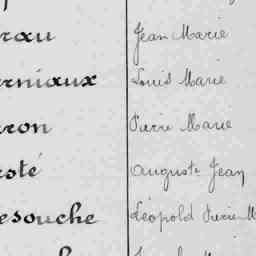 rau Jean Marie
rniaux Louis Marie
ron Pierre Marie
sté Auguste Jean
esouche Léopold Pierre M